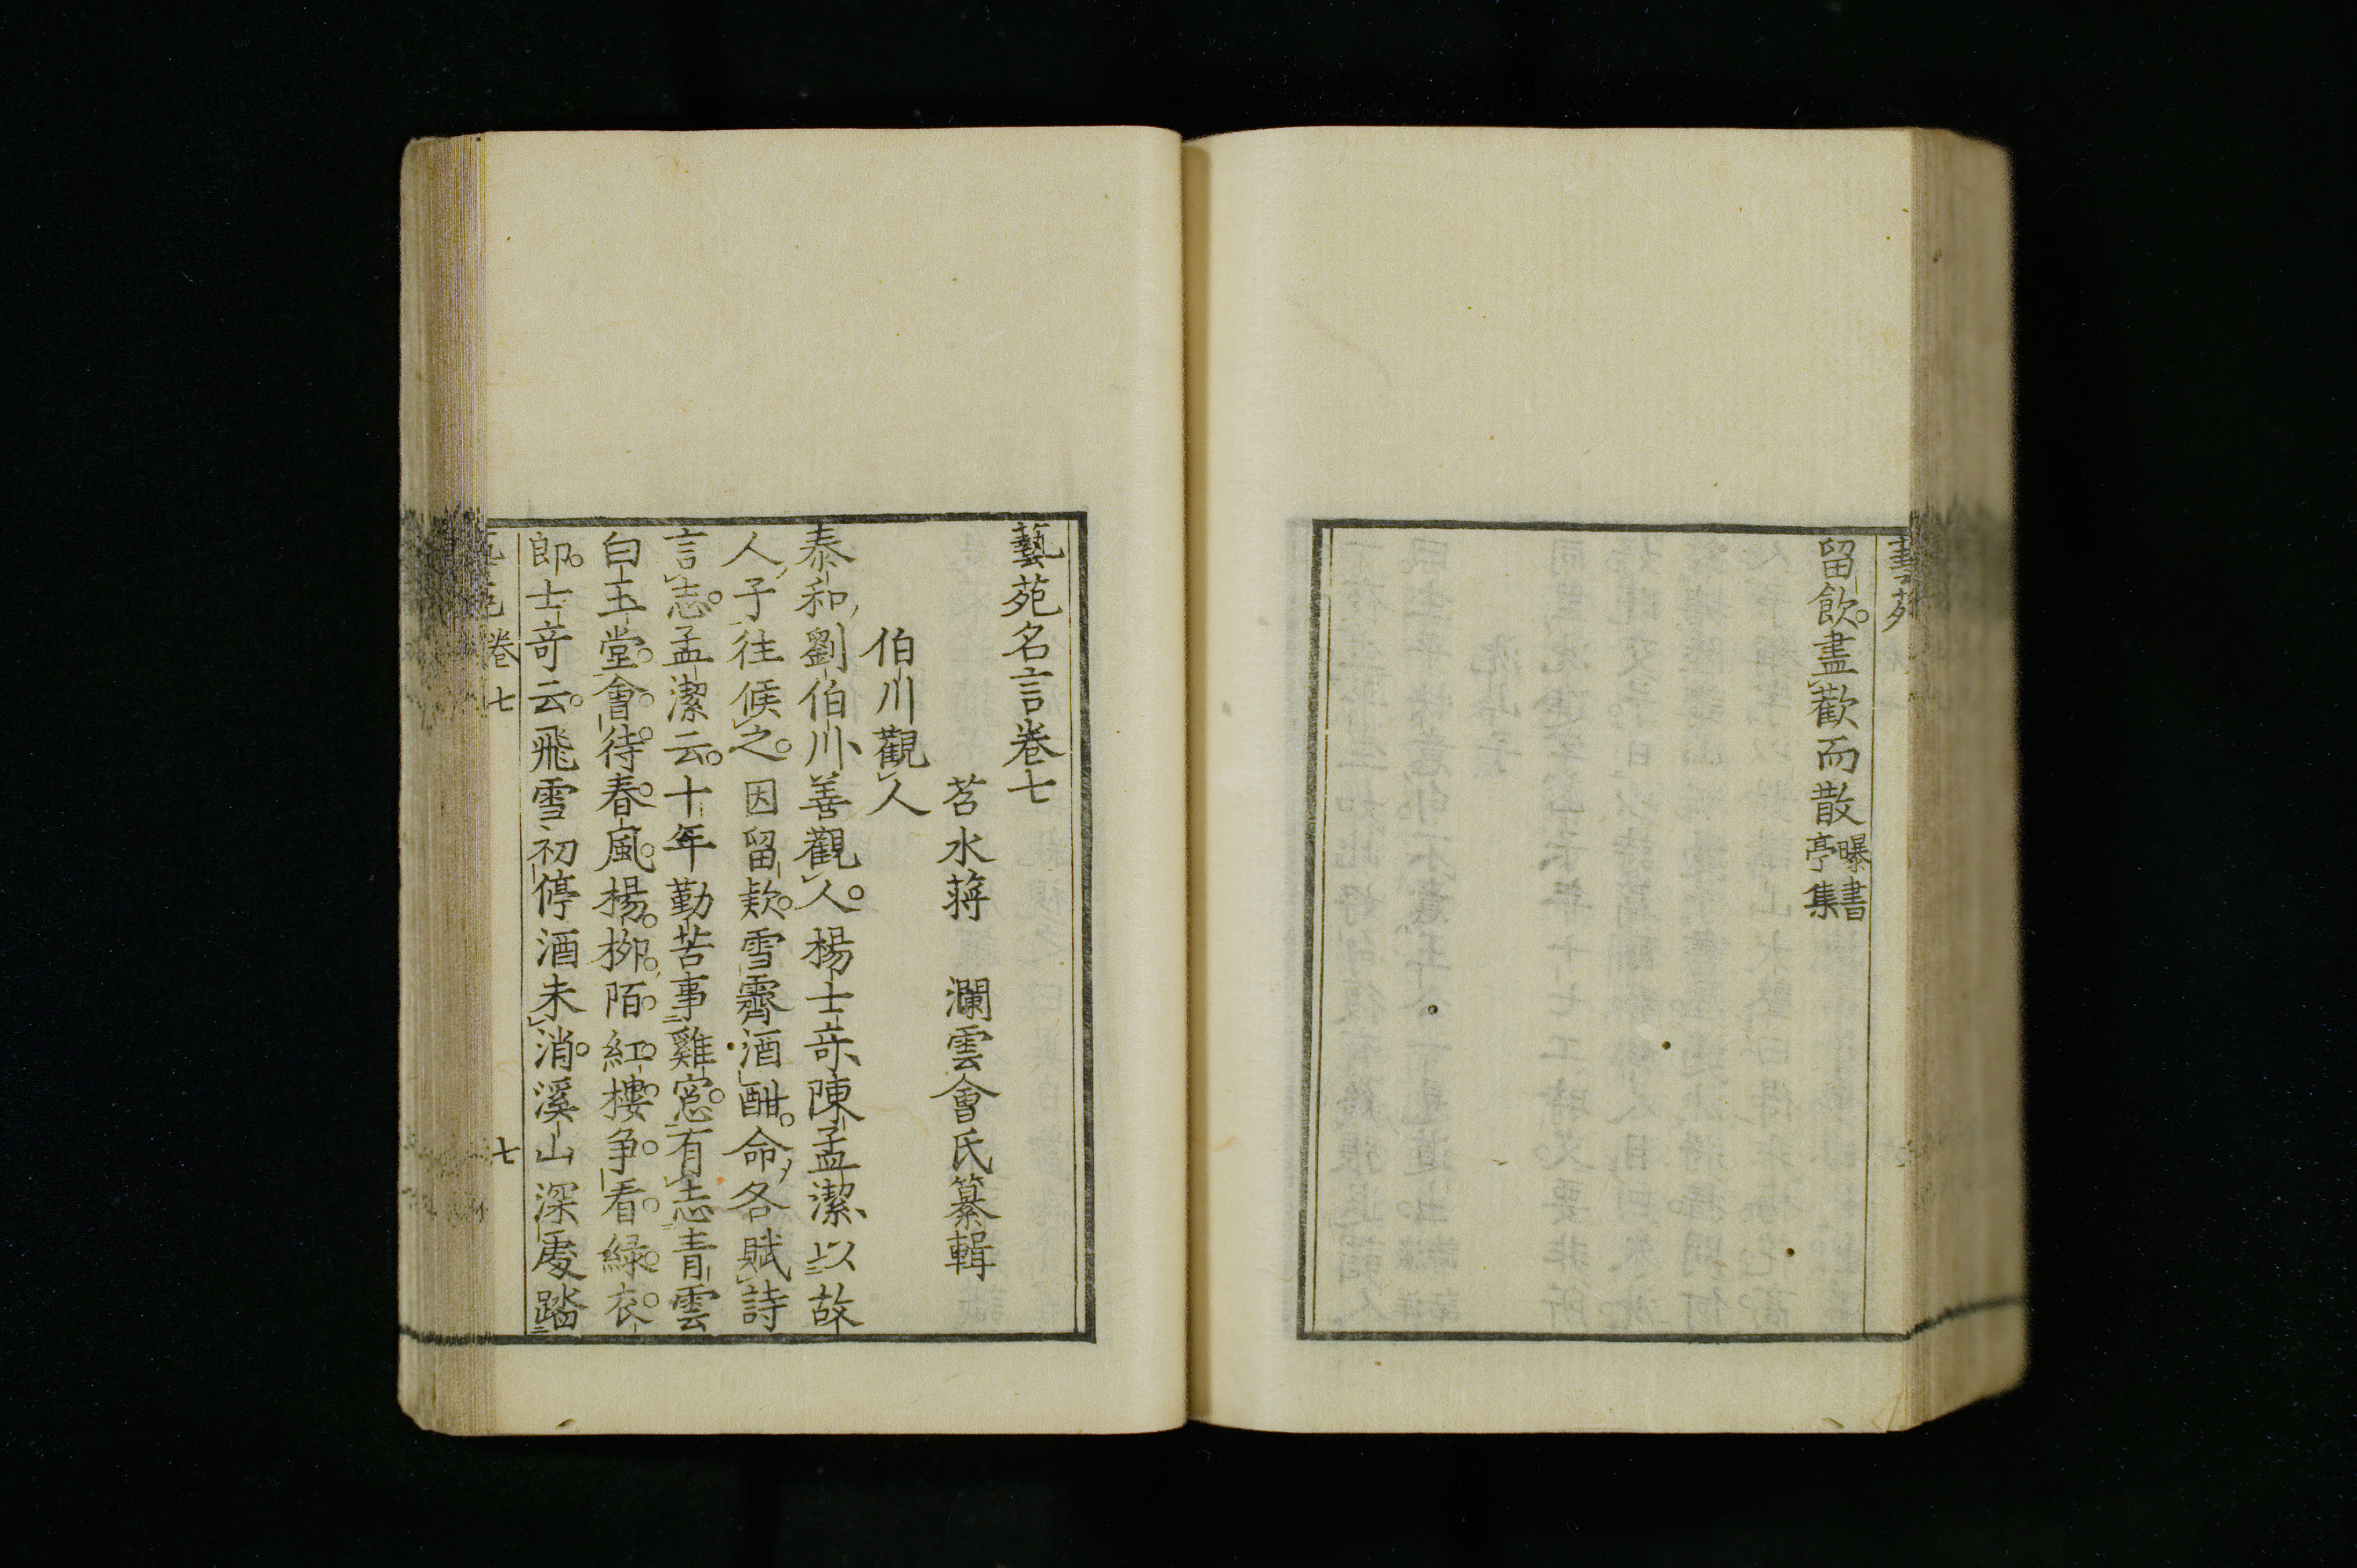 藝苑
留飲。盡歡而散曝書亭集
藝苑名言卷七
苕水蔣 瀾雲會氏纂輯
伯川觀人
泰和劉伯川善觀人。楊士竒陳孟潔以故
人子往候之。因留款。雪霽酒酣。命各賦詩
言志。孟潔云。十年勤苦事雞窓。有志青雲
白玉堂。會待春風楊柳陌。紅樓争看綠衣
郎。士竒云。飛雪初停酒未消。溪山深處踏
卷七 七